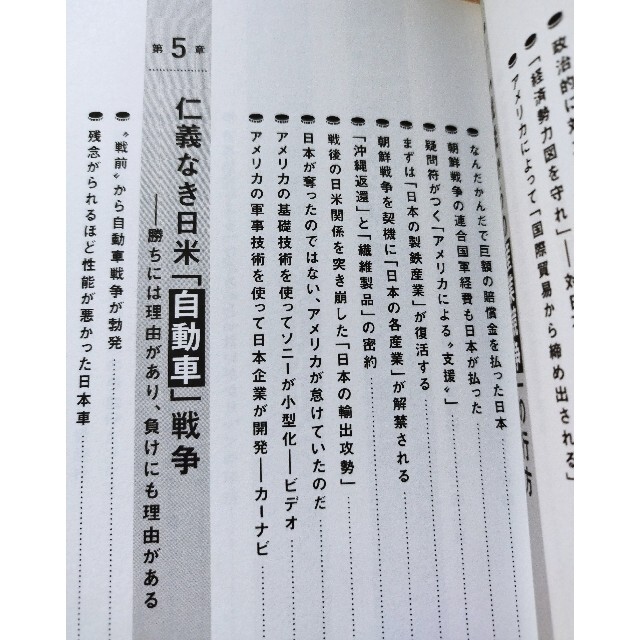 政治的に対
「経済勢力図を守れ」――対日
アメリカによって「国際貿易から締め出される」
の行方
なんだかんだで巨額の賠償金を払った日本
朝鮮戦争の連合国軍経費も日本が払った
疑問符がつく「アメリカによる〝支援〟」
まずは「日本の製鉄産業」が復活する
朝鮮戦争を契機に「日本の各産業」が解禁される
「沖縄返還」と「繊維製品」の密約
戦後の日米関係を突き崩した「日本の輸出攻勢」
日本が奪ったのではない、アメリカが怠けていたのだ
アメリカの基礎技術を使ってソニーが小型化――ビデオ
アメリカの軍事技術を使って日本企業が開発――カーナビ
第5章
仁義なき日米「自動車」戦争
――勝ちには理由があり、負けにも理由がある
〝戦前〟から自動車戦争が勃発
残念がられるほど性能が悪かった日本車